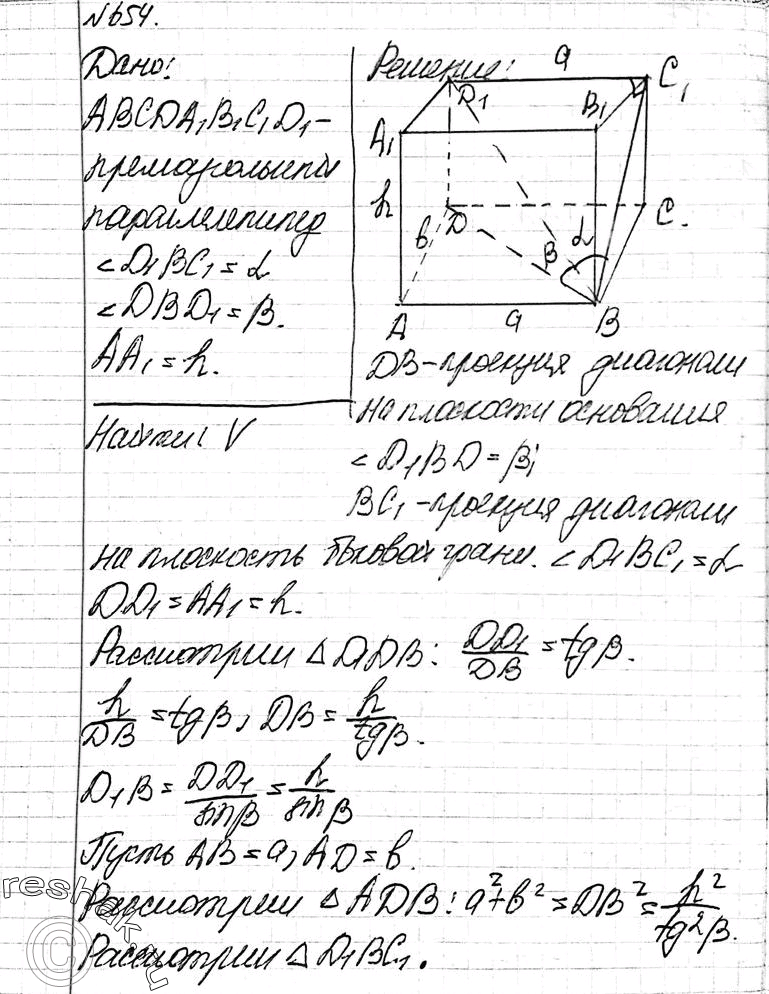 №654.
Дано:
ABCDA₁B₁C₁D₁-
прямоугольный
параллелепипед
∠D₁BC₁=α
∠DBD₁=β.
AA₁=h.
Найти: V
Решение:
a
D₁
C₁
B₁
A₁
h
D
C.
b
β
α
A
a
B
DB-проекция диагонали
на плоскости основания
∠D₁BD=β;
BC₁-проекция диагонали
на плоскость боковой грани. ∠D₁BC₁=α
DD₁=AA₁=h.
Рассмотрим △D₁DB: DD₁/DB=tgβ.
h/DB=tgβ, DB=h/tgβ.
D₁B=DD₁/sinβ=h/sinβ
Пусть AB=a, AD=b.
Рассмотрим △ADB: a²+b²=DB²=h²/tg²β.
Рассмотрим △D₁BC₁.
reshak.ru